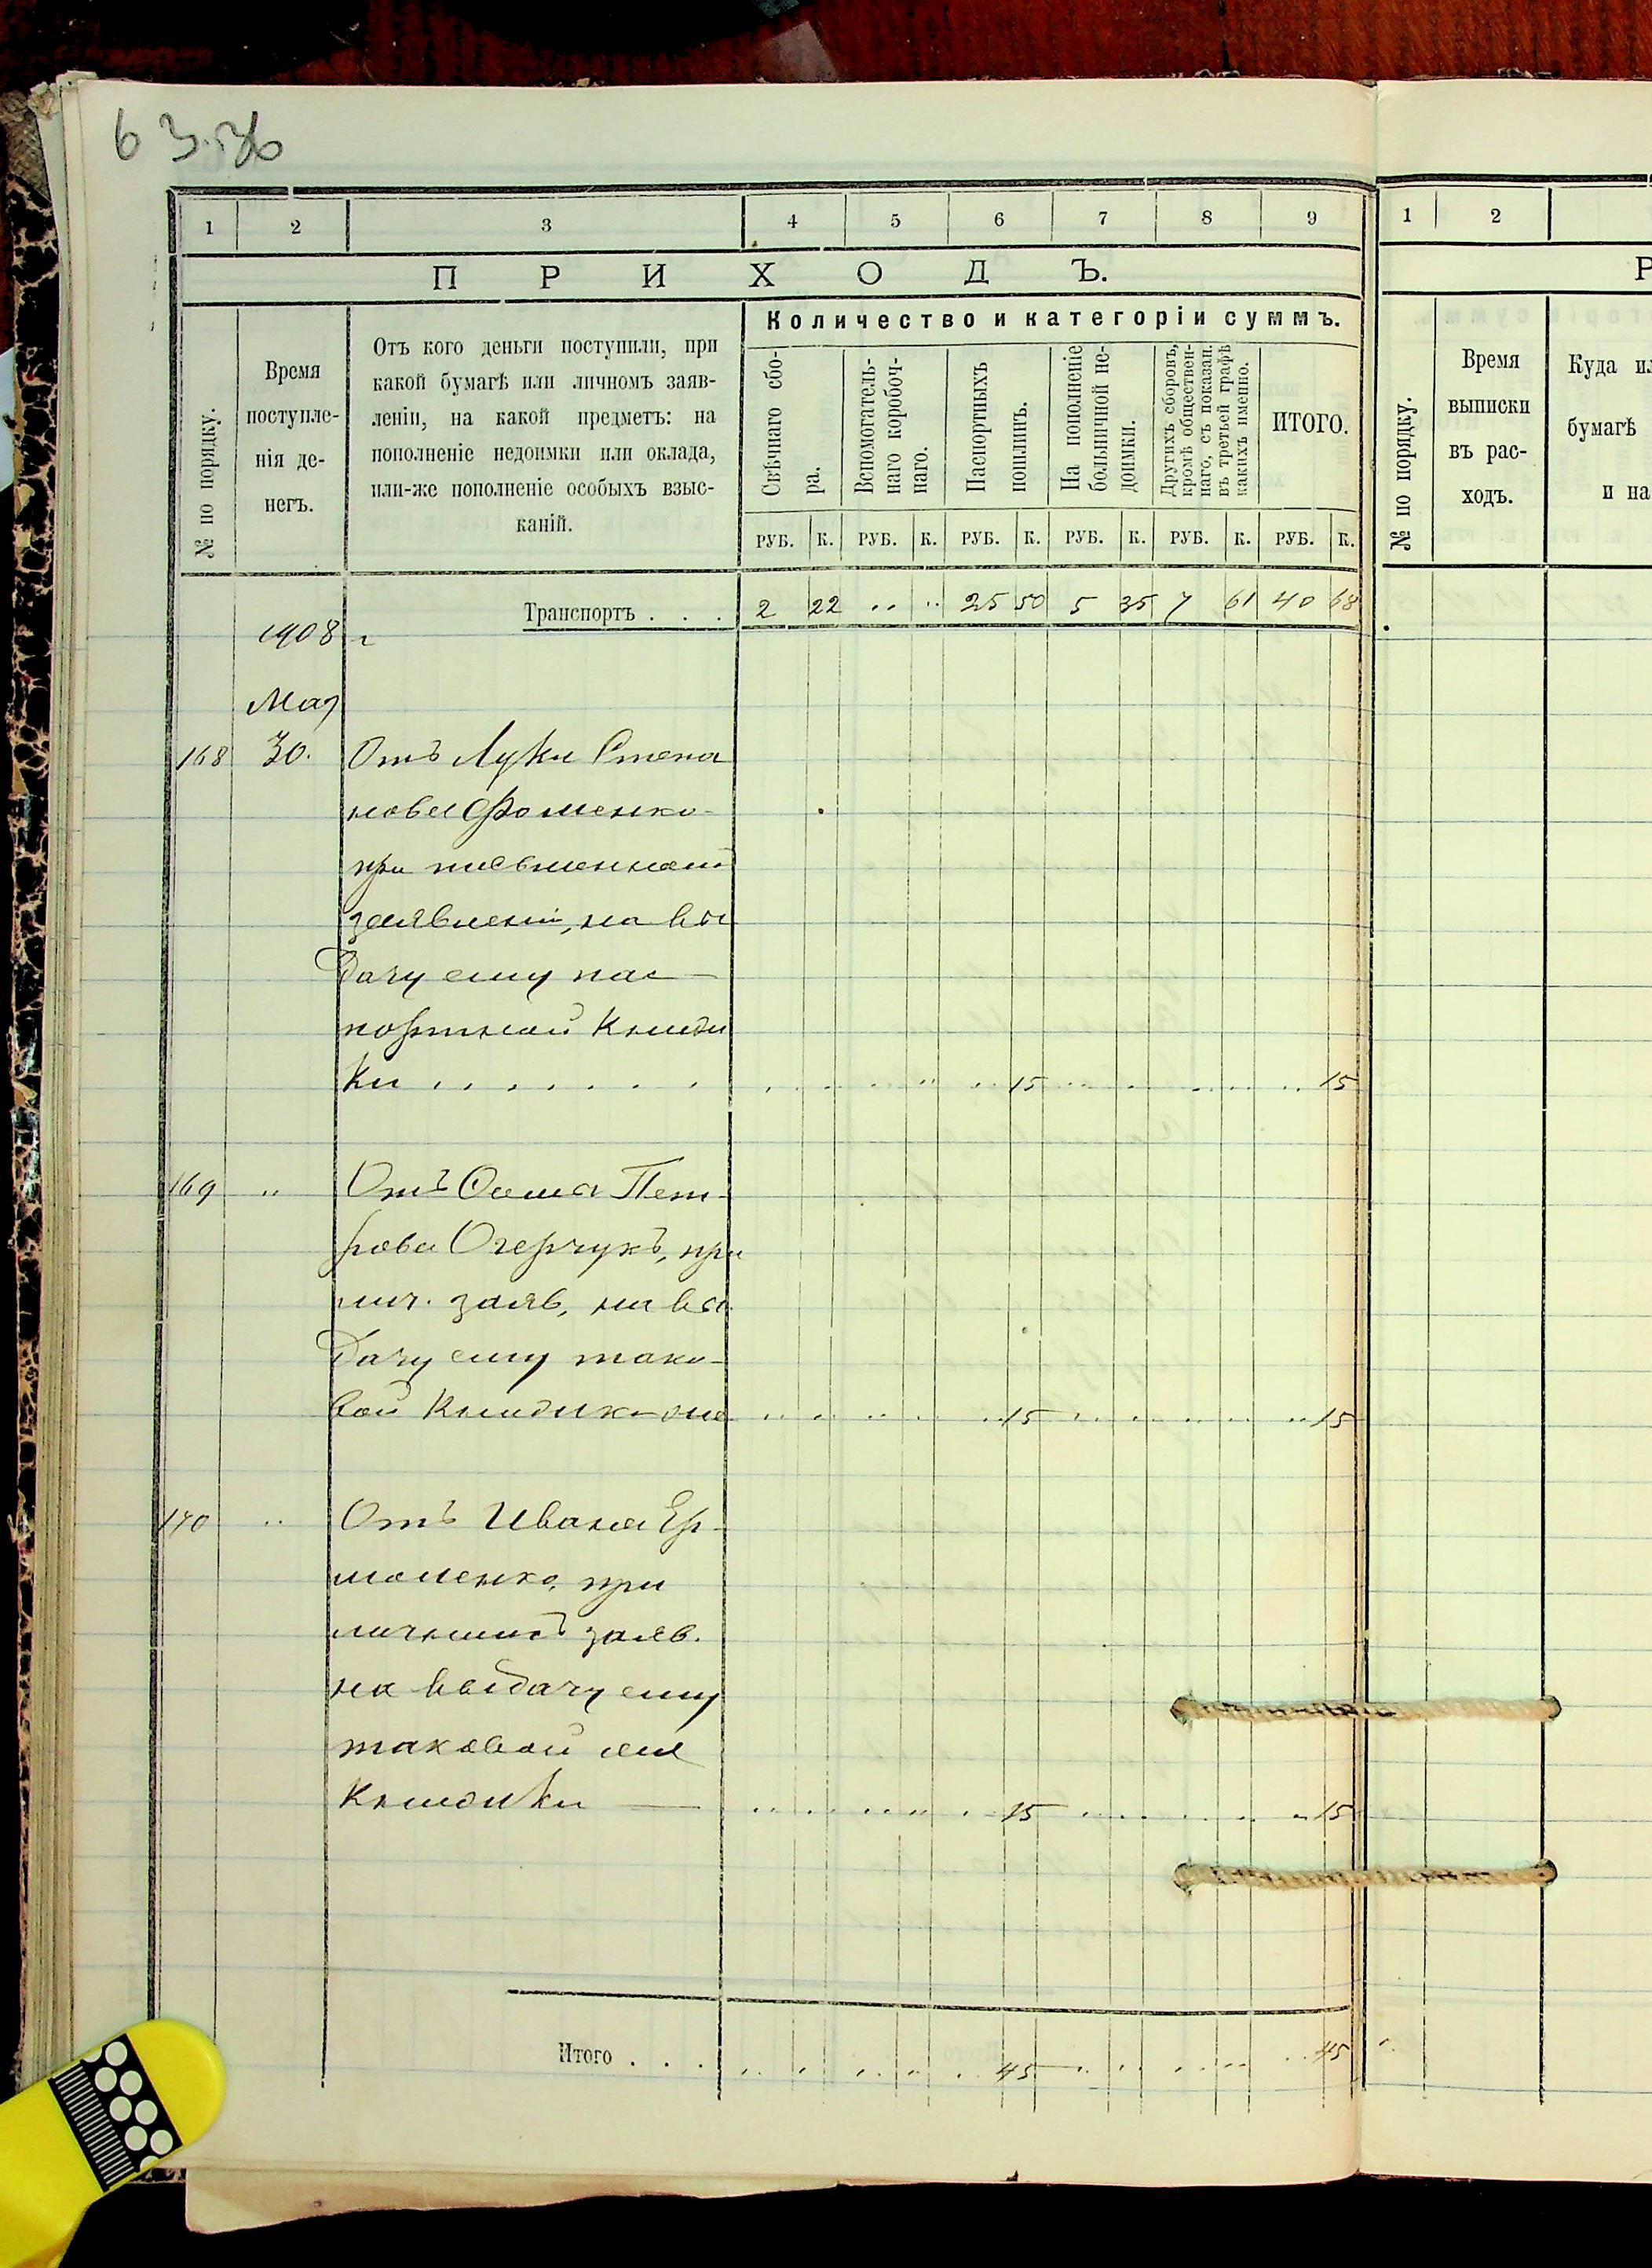 1 2 3 4 5 6 7 8 9
ПРИХОДЪ.
№ по порядку.
Время
поступле-
нія де-
негъ.
Отъ кого деньги поступили, при
какой бумагѣ или личномъ заяв-
леніи, на какой предметъ: на
пополненіе недоимки или оклада,
или-же пополненіе особыхъ взыс-
каній.
Количество и категоріи суммъ.
Свѣчнаго сбо-
ра.
Вспомогатель-
наго коробоч-
наго.
Паспортныхъ
пошлинъ.
На пополненіе
больничной не-
доимки.
Другихъ сборовъ,
кромѣ обществен-
наго, съ показан.
въ третьей графѣ
какихъ именно.
ИТОГО.
РУБ. К. РУБ. К. РУБ. К. РУБ. К. РУБ. К. РУБ. К.
Транспортъ . . . 2 22 " " 25 50 5 35 7 61 40 68
1908 г
Мая
168 30. Отъ Луки Степа
нова Фоменко-
при письменном
заявленіи, на вы
дачу ему пас-
портной Книж
Ки . . . . . . . 15 15
169 " Отъ Пет-
рова Огерчукъ, при
лич. заяв, на вы
дачу ему тако-
вой Книжки 15 15
170 " Отъ Ивана Ер-
моленко, при
личномъ заяв.
на выдачу ему
таковой же
Книжки — 15 15
Итого . . . 45 45
1 2
Р
№ по порядку.
Время
выписки
въ рас-
ходъ.
Куда
бумагѣ
и на